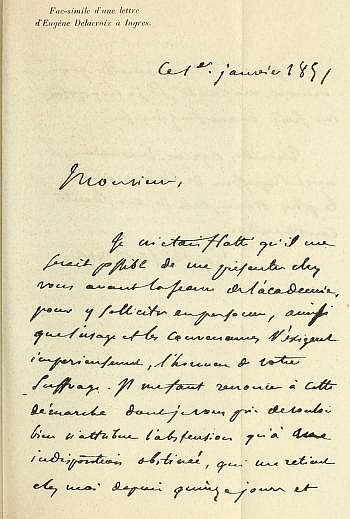 Fac-simile d'une lettre
d'Eugène Delacroix à Ingres.
Ce 1er. janvier 1851
Monsieur,
Je m'étais flatté qu'il me
serait possible de me présenter chez
vous avant la séance de l'académie,
pour y solliciter en personne, ainsi
que l'usage et les convenances l'exigent
impérieusement, l'honneur de votre
suffrage. Il me faut renoncer à cette
démarche dont je vous prie de vouloir
bien n'attribuer l'abstension qu'à une
indisposition obstinée, qui me retient
chez moi depuis quinze jours et